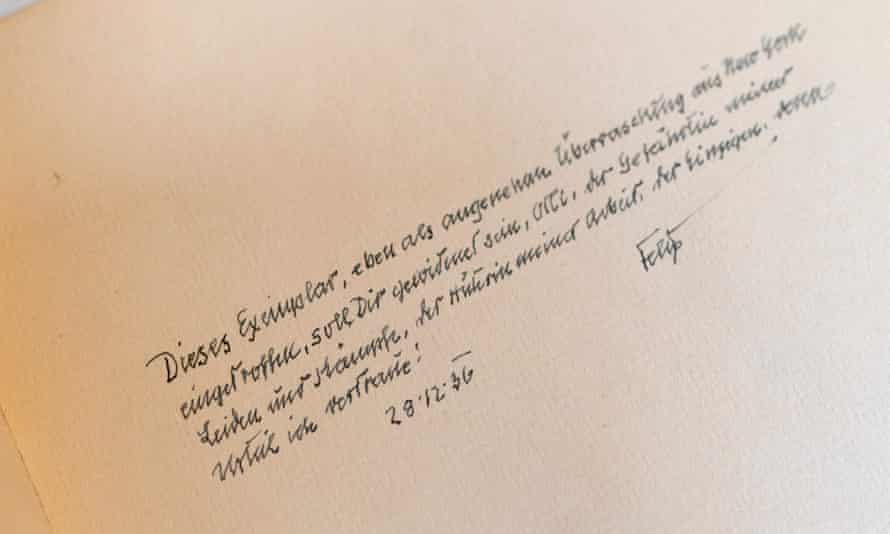 Dieses Exemplar, eben als angenehme Überraschung aus New York
eingetroffen, soll Dir gewidmet sein, Olli, der Gefährtin meiner
Leiden und Kämpfe, der Hüterin meiner Arbeit, der Einzigen, deren
Urteil ich vertraue!
28.12.36